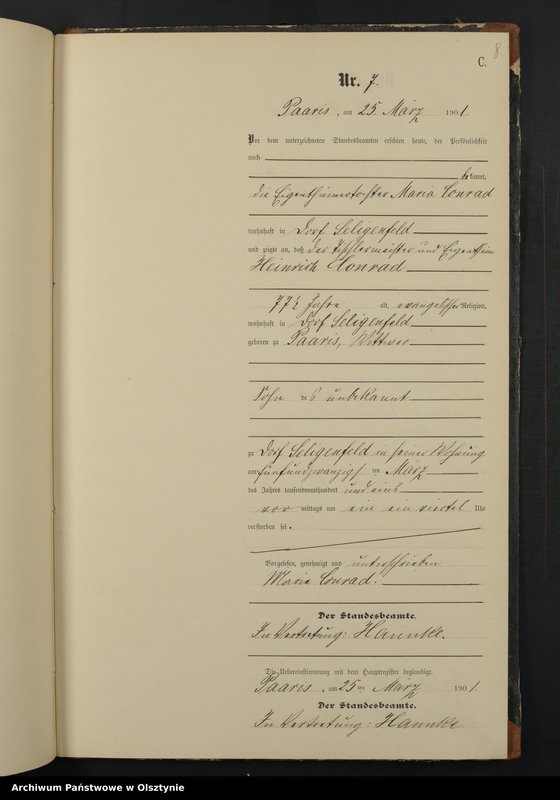 8
C.
Nr. 7.
Paaris, am 25. März 1901.
Vor dem unterzeichneten Standesbeamten erschien heute, der Persönlichkeit
nach
bekannt,
die Eigenthümertochter Maria Conrad
wohnhaft in Dorf Seligenfeld
und zeigte an, daß der Tischlermeister und Eigenthüm
Heinrich Conrad
77½ Jahre alt, evangelischer Religion,
wohnhaft in Dorf Seligenfeld
geboren zu Paaris, Wittwer
Sohn des unbekannt
zu Dorf Seligenfeld in seiner Wohnung
am fünfundzwanzigsten März
des Jahres tausendneunhundert und eins
vor mittags um ein ein viertel Uhr
verstorben sei.
Vorgelesen, genehmigt und unterschrieben
Maria Conrad.
Der Standesbeamte.
In Vertretung: Hannke.
Die Uebereinstimmung mit dem Hauptregister beglaubigt.
Paaris, am 25ten März 1901.
Der Standesbeamte.
In Vertretung: Hannke
Archiwum Państwowe w Olsztynie